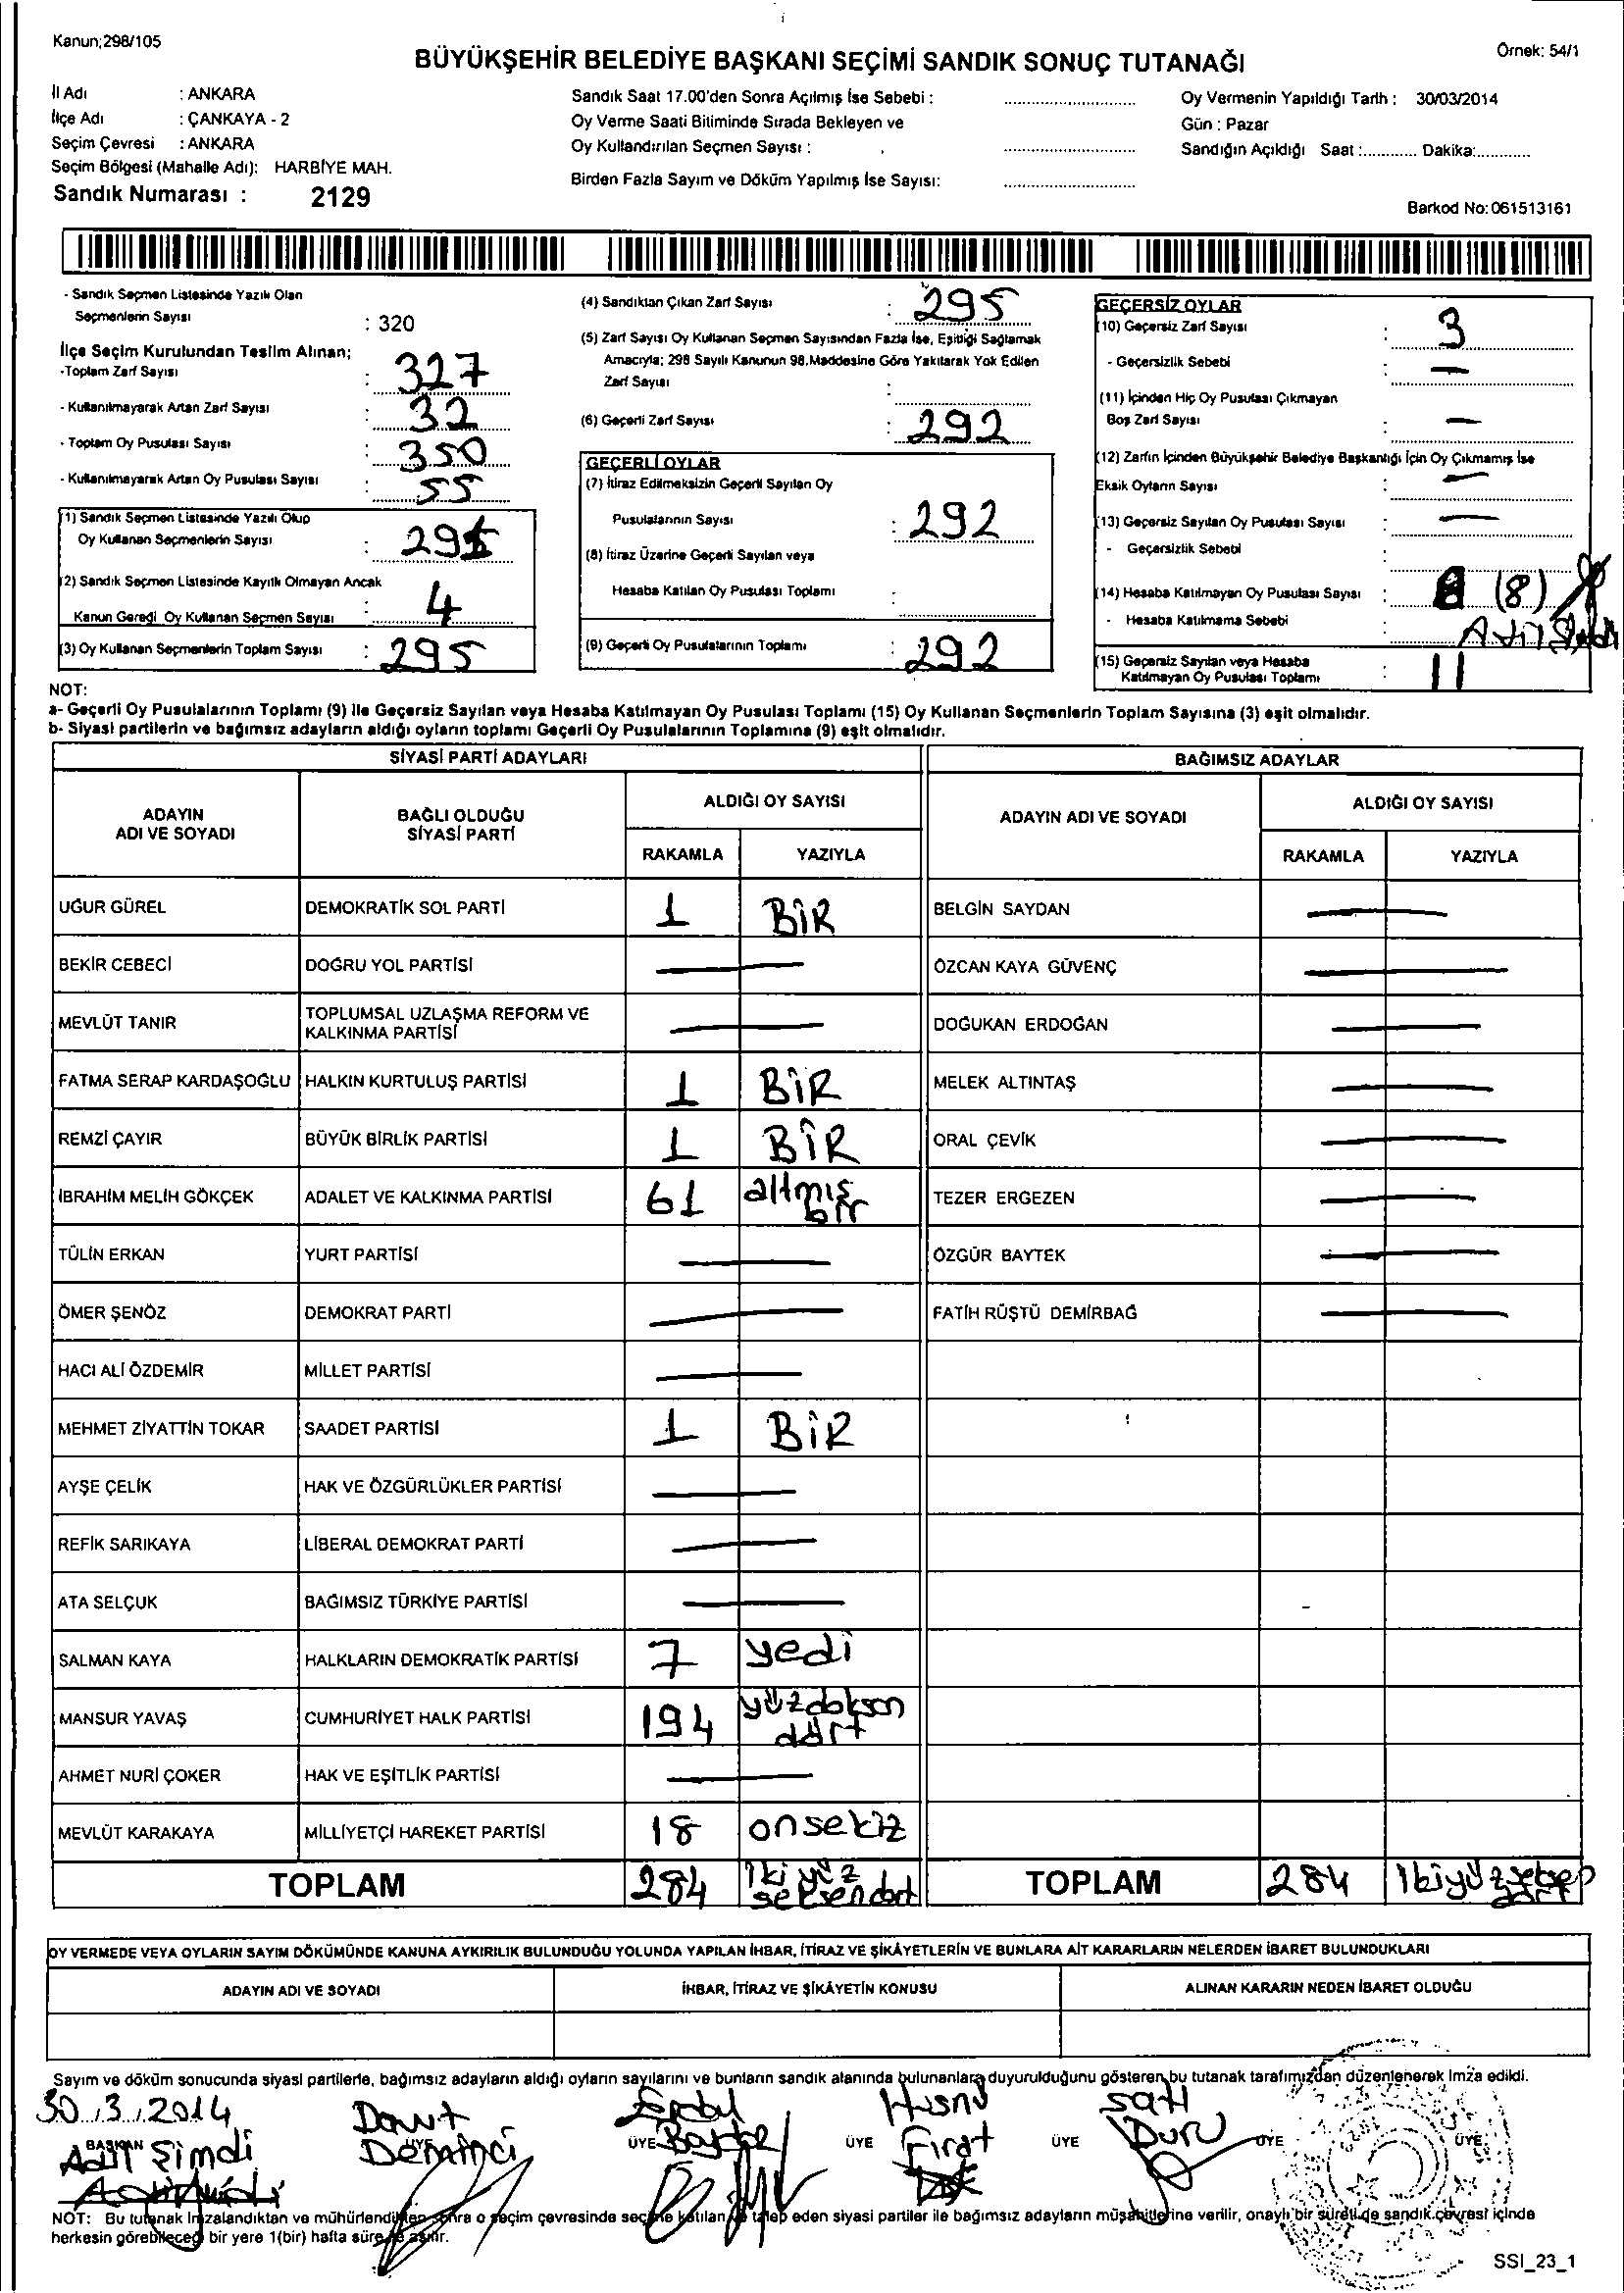 Kanun;298/105
BÜYÜKŞEHİR BELEDİYE BAŞKANI SEÇİMİ SANDIK SONUÇ TUTANAĞI
Örnek: 54/1
İl Adı : ANKARA
İlçe Adı : ÇANKAYA - 2
Seçim Çevresi : ANKARA
Seçim Bölgesi (Mahalle Adı): HARBİYE MAH.
Sandık Numarası : 2129
Sandık Saat 17.00'den Sonra Açılmış İse Sebebi :
Oy Verme Saati Bitiminde Sırada Bekleyen ve
Oy Kullandırılan Seçmen Sayısı :
Birden Fazla Sayım ve Döküm Yapılmış İse Sayısı:
Oy Vermenin Yapıldığı Tarih : 30/03/2014
Gün : Pazar
Sandığın Açıldığı Saat :............ Dakika:............
Barkod No:061513161
- Sandık Seçmen Listesinde Yazılı Olan
Seçmenlerin Sayısı : 320
İlçe Seçim Kurulundan Teslim Alınan;
-Toplam Zarf Sayısı : 327
- Kullanılmayarak Artan Zarf Sayısı : 32
- Toplam Oy Pusulası Sayısı : 350
- Kullanılmayarak Artan Oy Pusulası Sayısı : 55
(1) Sandık Seçmen Listesinde Yazılı Olup
Oy Kullanan Seçmenlerin Sayısı :
(2) Sandık Seçmen Listesinde Kayıtlı Olmayan Ancak
Kanun Gereği Oy Kullanan Seçmen Sayısı : 4
(3) Oy Kullanan Seçmenlerin Toplam Sayısı : 295
(4) Sandıktan Çıkan Zarf Sayısı : 295
(5) Zarf Sayısı Oy Kullanan Seçmen Sayısından Fazla İse, Eşitliği Sağlamak
Amacıyla; 298 Sayılı Kanunun 98.Maddesine Göre Yakılarak Yok Edilen
Zarf Sayısı :
(6) Geçerli Zarf Sayısı : 292
GEÇERLİ OYLAR
(7) İtiraz Edilmeksizin Geçerli Sayılan Oy
Pusulalarının Sayısı : 292
(8) İtiraz Üzerine Geçerli Sayılan veya
Hesaba Katılan Oy Pusulası Toplamı :
(9) Geçerli Oy Pusulalarının Toplamı : 292
GEÇERSİZ OYLAR
(10) Geçersiz Zarf Sayısı : 3
- Geçersizlik Sebebi : —
(11) İçinden Hiç Oy Pusulası Çıkmayan
Boş Zarf Sayısı : —
(12) Zarfın İçinden Büyükşehir Belediye Başkanlığı İçin Oy Çıkmamış İse
Eksik Oyların Sayısı : —
(13) Geçersiz Sayılan Oy Pusulası Sayısı : —
- Geçersizlik Sebebi :
(14) Hesaba Katılmayan Oy Pusulası Sayısı : 8 (8)
- Hesaba Katılmama Sebebi :
(15) Geçersiz Sayılan veya Hesaba
Katılmayan Oy Pusulası Toplamı : 11
NOT:
a- Geçerli Oy Pusulalarının Toplamı (9) ile Geçersiz Sayılan veya Hesaba Katılmayan Oy Pusulası Toplamı (15) Oy Kullanan Seçmenlerin Toplam Sayısına (3) eşit olmalıdır.
b- Siyasi partilerin ve bağımsız adayların aldığı oyların toplamı Geçerli Oy Pusulalarının Toplamına (9) eşit olmalıdır.
SİYASİ PARTİ ADAYLARI BAĞIMSIZ ADAYLAR
ADAYIN
ADI VE SOYADI
BAĞLI OLDUĞU
SİYASİ PARTİ
ALDIĞI OY SAYISI
RAKAMLA YAZIYLA
ADAYIN ADI VE SOYADI
ALDIĞI OY SAYISI
RAKAMLA YAZIYLA
UĞUR GÜREL DEMOKRATİK SOL PARTİ 1 BİR BELGİN SAYDAN —
BEKİR CEBECİ DOĞRU YOL PARTİSİ — ÖZCAN KAYA GÜVENÇ —
MEVLÜT TANIR TOPLUMSAL UZLAŞMA REFORM VE
KALKINMA PARTİSİ — DOĞUKAN ERDOĞAN —
FATMA SERAP KARDAŞOĞLU HALKIN KURTULUŞ PARTİSİ 1 BİR MELEK ALTINTAŞ —
REMZİ ÇAYIR BÜYÜK BİRLİK PARTİSİ 1 BİR ORAL ÇEVİK —
İBRAHİM MELİH GÖKÇEK ADALET VE KALKINMA PARTİSİ 61 altmış
bir TEZER ERGEZEN —
TÜLİN ERKAN YURT PARTİSİ — ÖZGÜR BAYTEK —
ÖMER ŞENÖZ DEMOKRAT PARTİ — FATİH RÜŞTÜ DEMİRBAĞ —
HACI ALİ ÖZDEMİR MİLLET PARTİSİ —
MEHMET ZİYATTİN TOKAR SAADET PARTİSİ 1 BİR
AYŞE ÇELİK HAK VE ÖZGÜRLÜKLER PARTİSİ —
REFİK SARIKAYA LİBERAL DEMOKRAT PARTİ —
ATA SELÇUK BAĞIMSIZ TÜRKİYE PARTİSİ —
SALMAN KAYA HALKLARIN DEMOKRATİK PARTİSİ 7 yedi
MANSUR YAVAŞ CUMHURİYET HALK PARTİSİ 194 yüzdoksan
dört
AHMET NURİ ÇOKER HAK VE EŞİTLİK PARTİSİ —
MEVLÜT KARAKAYA MİLLİYETÇİ HAREKET PARTİSİ 18 onsekiz
TOPLAM 284 İkiyüz
seksendört TOPLAM 284 İkiyüzseksen
dört
OY VERMEDE VEYA OYLARIN SAYIM DÖKÜMÜNDE KANUNA AYKIRILIK BULUNDUĞU YOLUNDA YAPILAN İHBAR, İTİRAZ VE ŞİKÂYETLERİN VE BUNLARA AİT KARARLARIN NELERDEN İBARET BULUNDUKLARI
ADAYIN ADI VE SOYADI İHBAR, İTİRAZ VE ŞİKÂYETİN KONUSU ALINAN KARARIN NEDEN İBARET OLDUĞU
Sayım ve döküm sonucunda siyasi partilerle, bağımsız adayların aldığı oyların sayılarını ve bunların sandık alanında bulunanlara duyurulduğunu gösteren bu tutanak tarafımızdan düzenlenerek imza edildi.
30.3.2014
BAŞKAN ÜYE ÜYE ÜYE ÜYE ÜYE
Adil Şimdi
Davut
Demirci
Hüsnü
Fırat
Satı
Duru
NOT: Bu tutanak imzalandıktan ve mühürlendikten sonra o seçim çevresinde seçime katılan ve talep eden siyasi partiler ile bağımsız adayların müşahitlerine verilir, onaylı bir sureti de sandık çevresi içinde
herkesin görebileceği bir yere 1(bir) hafta süre ile asılır.
SSI_23_1